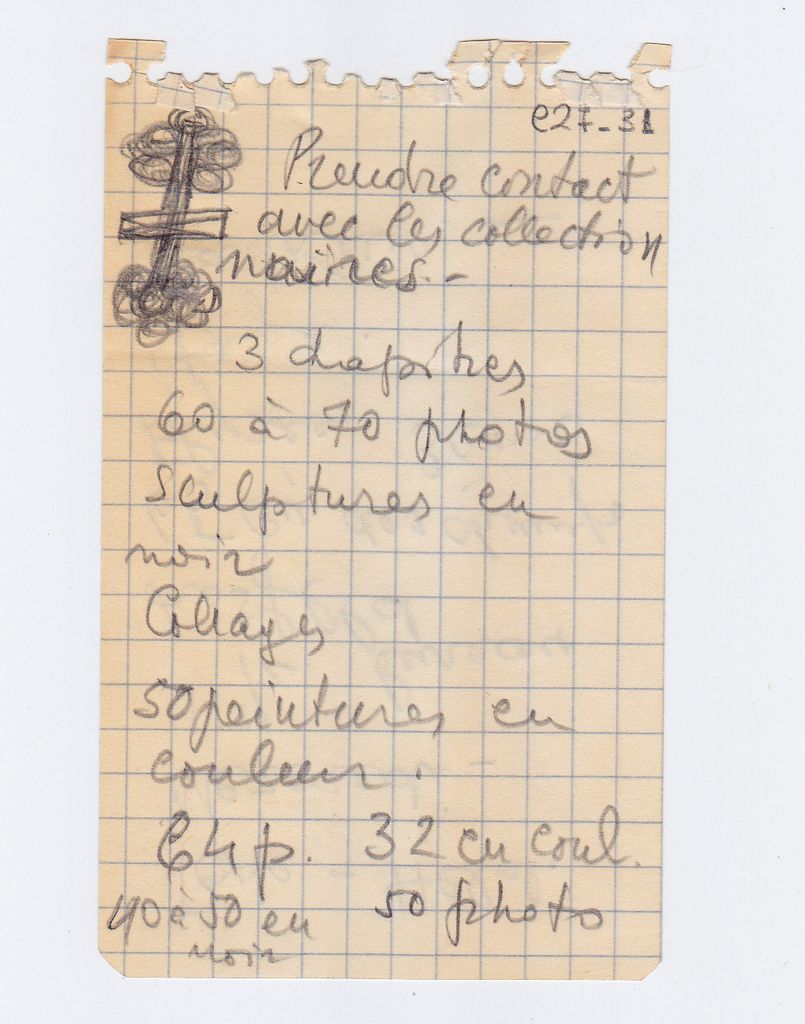 e27-31
Prendre contact
avec les collection
naires.-
3 chapitres
60 à 70 photos
Sculptures en
noir
Collages
50 peintures en
couleur.
64 p. 32 en coul.
40 à 50 en 50 photo
noir